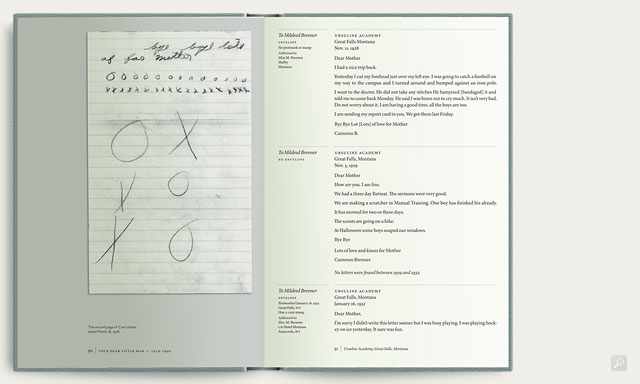 bye bye lots
of for mother
O O O O O O O O O O O O O
x x x x x x x x x x x x x x
O X
X O
X O
The second page of Cam's letter
dated March 16, 1928.
50 | YOUR DEAR LITTLE MAN — 1919–1940
To Mildred Brenner
ENVELOPE
No postmark or stamp
Addressed to:
Miss M. Brenner
Shelby
Montana
URSULINE ACADEMY
Great Falls Montana
Nov. 11, 1928
Dear Mother
I had a nice trip back.
Yesterday I cut my forehead just over my left eye. I was going to catch a football on
my way to the campus and I turned around and bumped against an iron pole.
I went to the doctor. He did not take any stitches He banyized [bandaged] it and
told me to come back Monday. He said I was brave not to cry much. It isn't very bad.
Do not worry about it. I am having a good time, all the boys are too.
I am sending my report card to you. We got them last Friday.
Bye Bye Lot [Lots] of love for Mother
Cameron B.
To Mildred Brenner
NO ENVELOPE
URSULINE ACADEMY
Great Falls, Montana
Nov. 5, 1929
Dear Mother
How are you. I am fine.
We had a three day Retreat. The sermons were very good.
We are making a scratcher in Manual Training. One boy has finished his already.
It has snowed for two or three days.
The scouts are going on a bike.
At Halloween some boys soaped our windows.
Bye Bye
Lots of love and kisses for Mother
Cameron Brenner
No letters were found between 1929 and 1932.
To Mildred Brenner
ENVELOPE
Postmarked January 18, 1932
Great Falls, MT
One 2-cent stamp
Addressed to:
Mrs. M. Brenner
c/o Hotel Montana
Anaconda, MT
URSULINE ACADEMY
Great Falls, Montana
January 16, 1932
Dear Mother,
I'm sorry I didn't write this letter sooner but I was busy playing. I was playing hock-
ey on ice yesterday. It sure was fun.
51 | Ursuline Academy, Great Falls, Montana